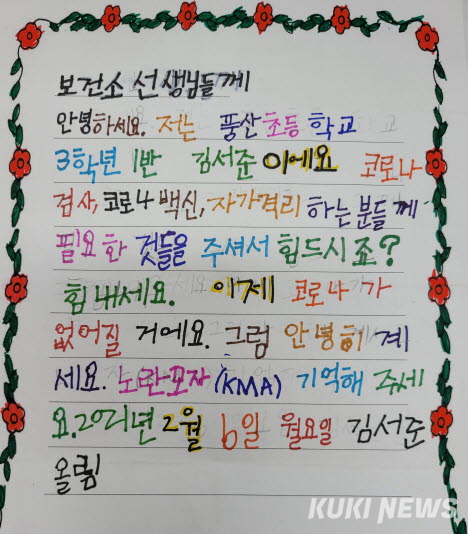 보건소 선생님들께
안녕하세요. 저는 풍산초등 학교
3학년 1반 김서준 이에요 코로나
검사, 코로나 백신, 자가격리 하는 분들께
필요한 것들을 주셔서 힘드시죠?
힘내세요. 이제 코로나가
없어질 거에요. 그럼 안녕히 계
세요. 노란모자 (KMA) 기억해 주세
요. 2021년 2월 6일 월요일 김서준
올림
KUKI NEWS